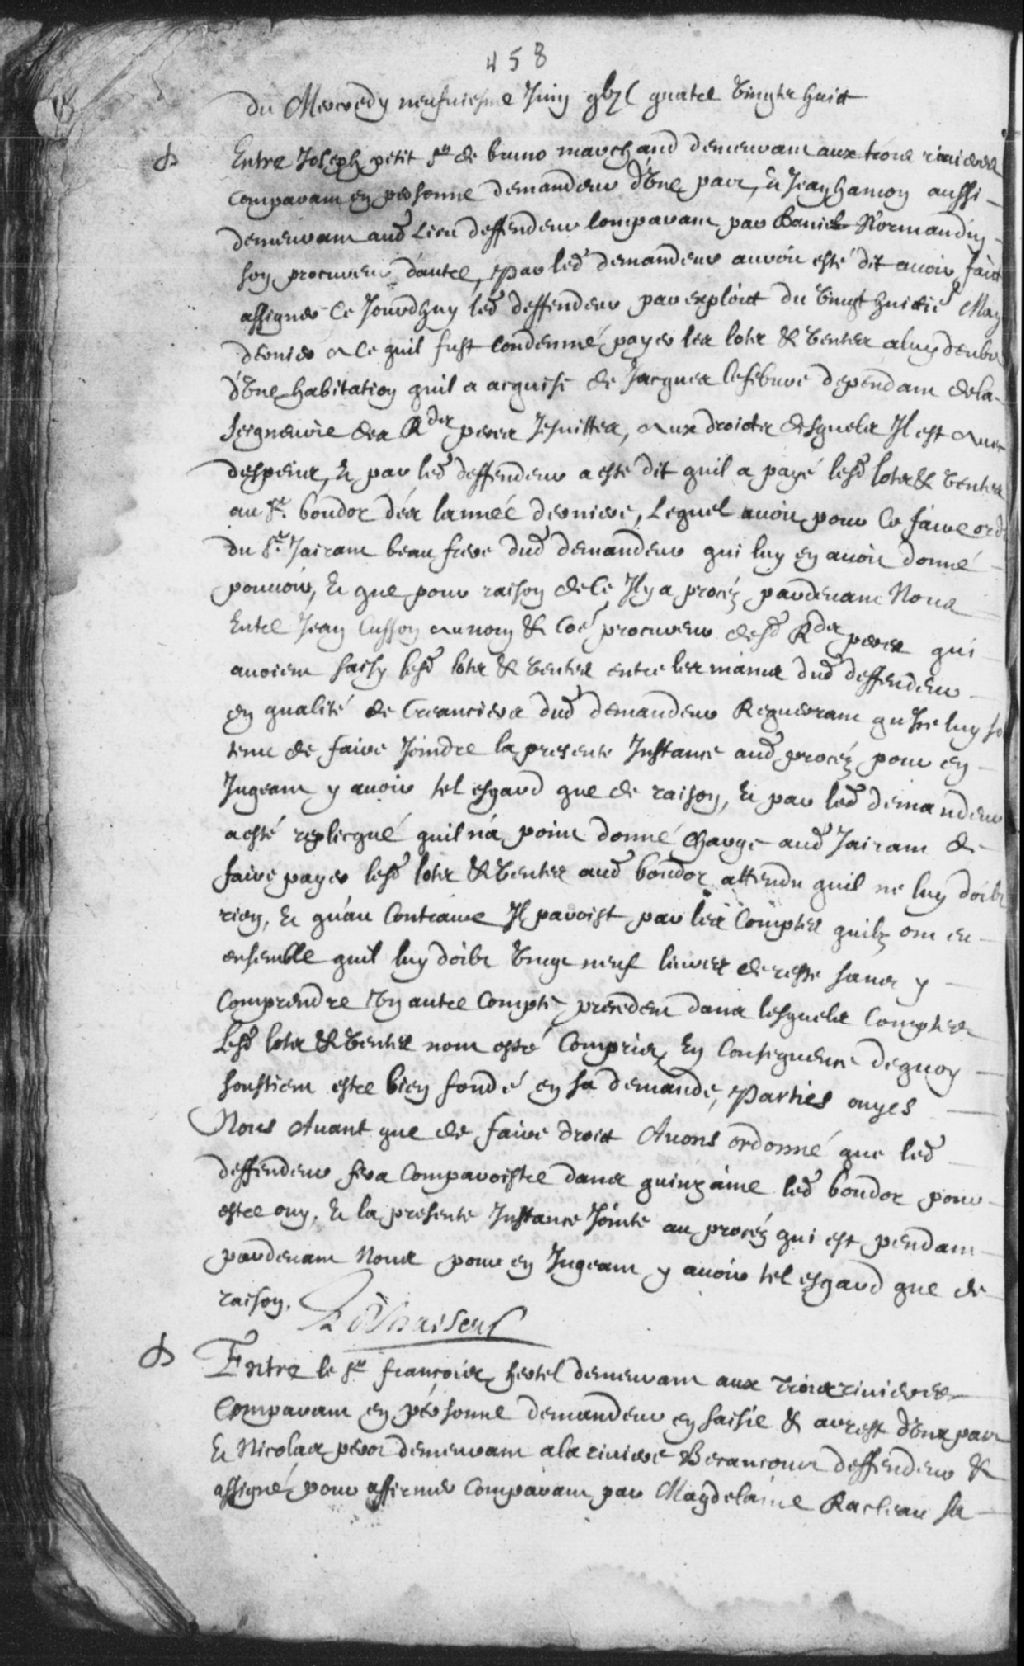 458
du Mercredy neufviesme Juin gbjC quatre vingts huict
Entre Joseph petit Sr de bruno marchand demeurant aux trois rivieres
comparant en personne demandeur d'Une part, Et Jean hamon aussi
demeurant aud Lieu deffendeur Comparant par Daniel Normandin
son procureur d'autre, Par led demandeur auroit esté dit avoir fait
assigner Ce Jourdhuy led deffendeur par exploict du vingt huictie May
dernier a Ce quil fust Condemné payer les lotz & ventes a luy deubz
d'Une habitation quil a acquise de Jacques lefebvre dependant de la
seigneurie des Rdes peres Jesuittes, aux droicts desquels Il est avec
despens, Et par led deffendeur a esté dit quil a payé lesd lotz & ventes
au Sr. boudor dés lannée derniere, Lequel avoit pour Ce faire ord
du Sr. Jairam beau frere dud demandeur qui luy en avoit donné
pouvoir, Et que pour raison de Ce Il y a procéz pardevant Nous
Entre Jean Cusson au nom & Co͠e procureur desd Rdes peres qui
avoient saisy lesd lotz & ventes entre les mains dud deffendeur
en qualité de Creanciers dud demandeur Requerant quIl luy so
tenu de faire Joindre la presente Instance aud procéz pour en
Jugeant y avoir tel esgard que de raison, Et par led demandeur
a esté replicqué quil n'a point donné charge aud Jairam de
faire payer lesd lotz & ventes aud boudor attendu quil ne luy doibt
rien, Et qu'au Contraire Il paroist par les Comptes quilz ont eu
ensemble quil luy doibt vingt neuf livres de reste sans y
Comprendre Un autre Compte precedent dans lesquels Comptes
Lesd lotz & ventes nont esté Compris, En Consequence dequoy
soustient estre bien fondé en sa demande, Parties ouyes
Nous Avant que de faire droit Avons ordonné que led
deffendeur fera Comparoistre dans quinzaine led boudor pour
estre ouy, Et la presente Instance Jointe au procéz qui est pendant
pardevant Nous pour en Jugeant y avoir tel esgard que de
raison.
Entre le Sr françois hertel demeurant aux trois rivieres
Comparant en personne demandeur en saisie & arrest d'Une part
Et Nicolas perot demeurant a la riviere Becancour deffendeur &
assigné pour affirmer Comparant par Magdelaine Racleau sa